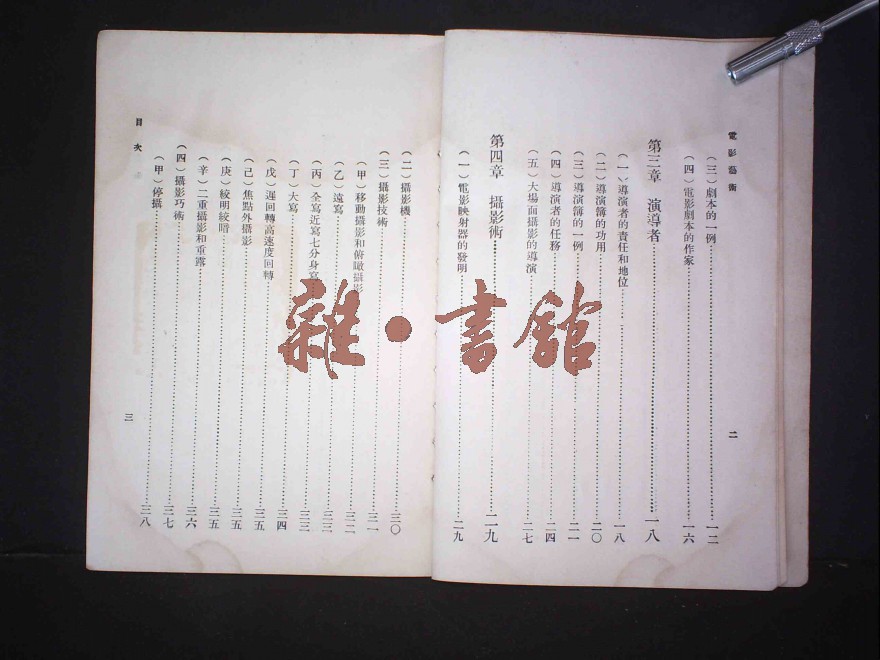 電影藝術
二
（三）劇本的一例……一二
（四）電影劇本的作家……一六
第三章　演導者……一八
（一）導演者的責任和地位……一八
（二）導演簿的功用……二〇
（三）導演簿的一例……二一
（四）導演者的任務……二四
（五）大場面攝影的導演……二七
第四章　攝影術……二九
（一）電影映射器的發明……二九
（二）攝影機……三〇
（三）攝影技術……三一
（甲）移動攝影和俯瞰攝影……三二
（乙）遠寫……三三
（丙）全寫近寫七分身寫……三三
（丁）大寫……三四
（戊）遲回轉高速度回轉……三五
（己）焦點外攝影……三五
（庚）絞明絞暗……三五
（辛）二重攝影和重露……三六
（四）攝影巧術……三七
（甲）停攝……三八
目次
三
雜·書館